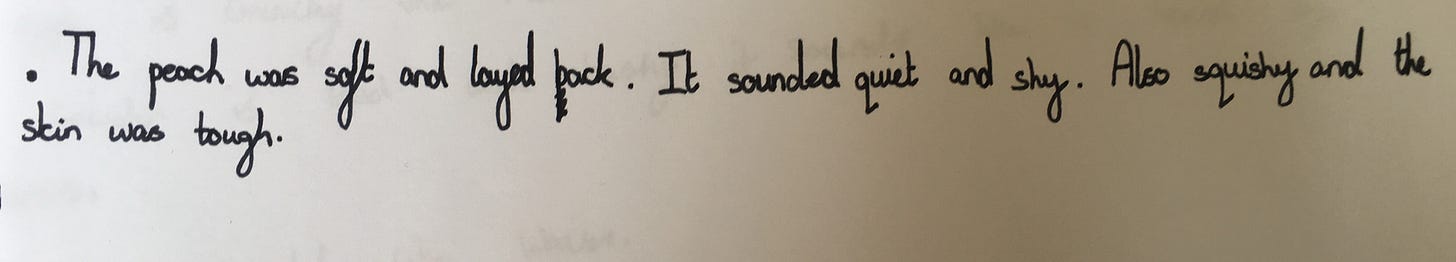 . The peach was soft and layed back. It sounded quiet and shy. Also squishy and the
skin was tough.